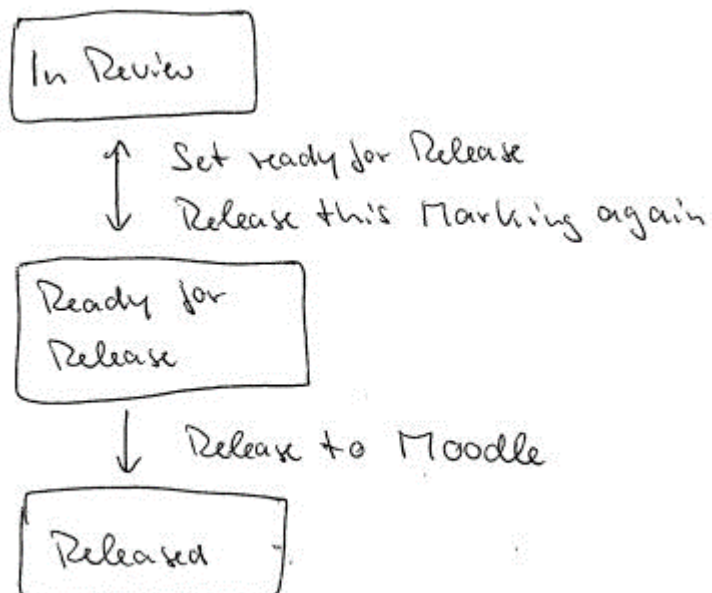 In Review
Set ready for Release
Release this Marking again
Ready for
Release
Release to Moodle
Released